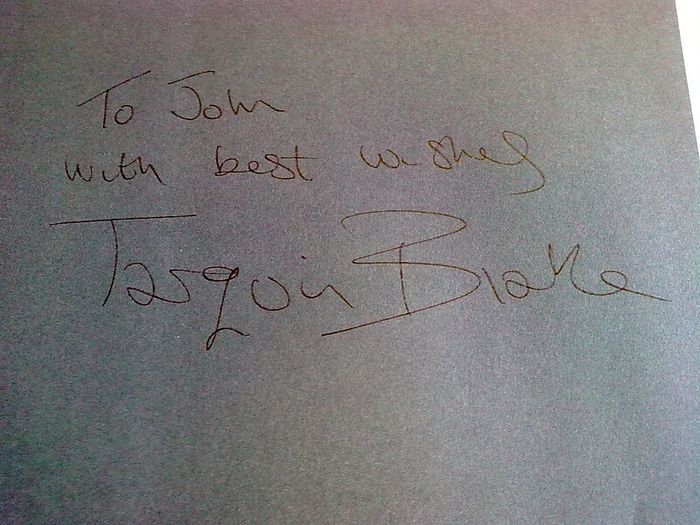 To John
with best wishes
Tarquin Blake